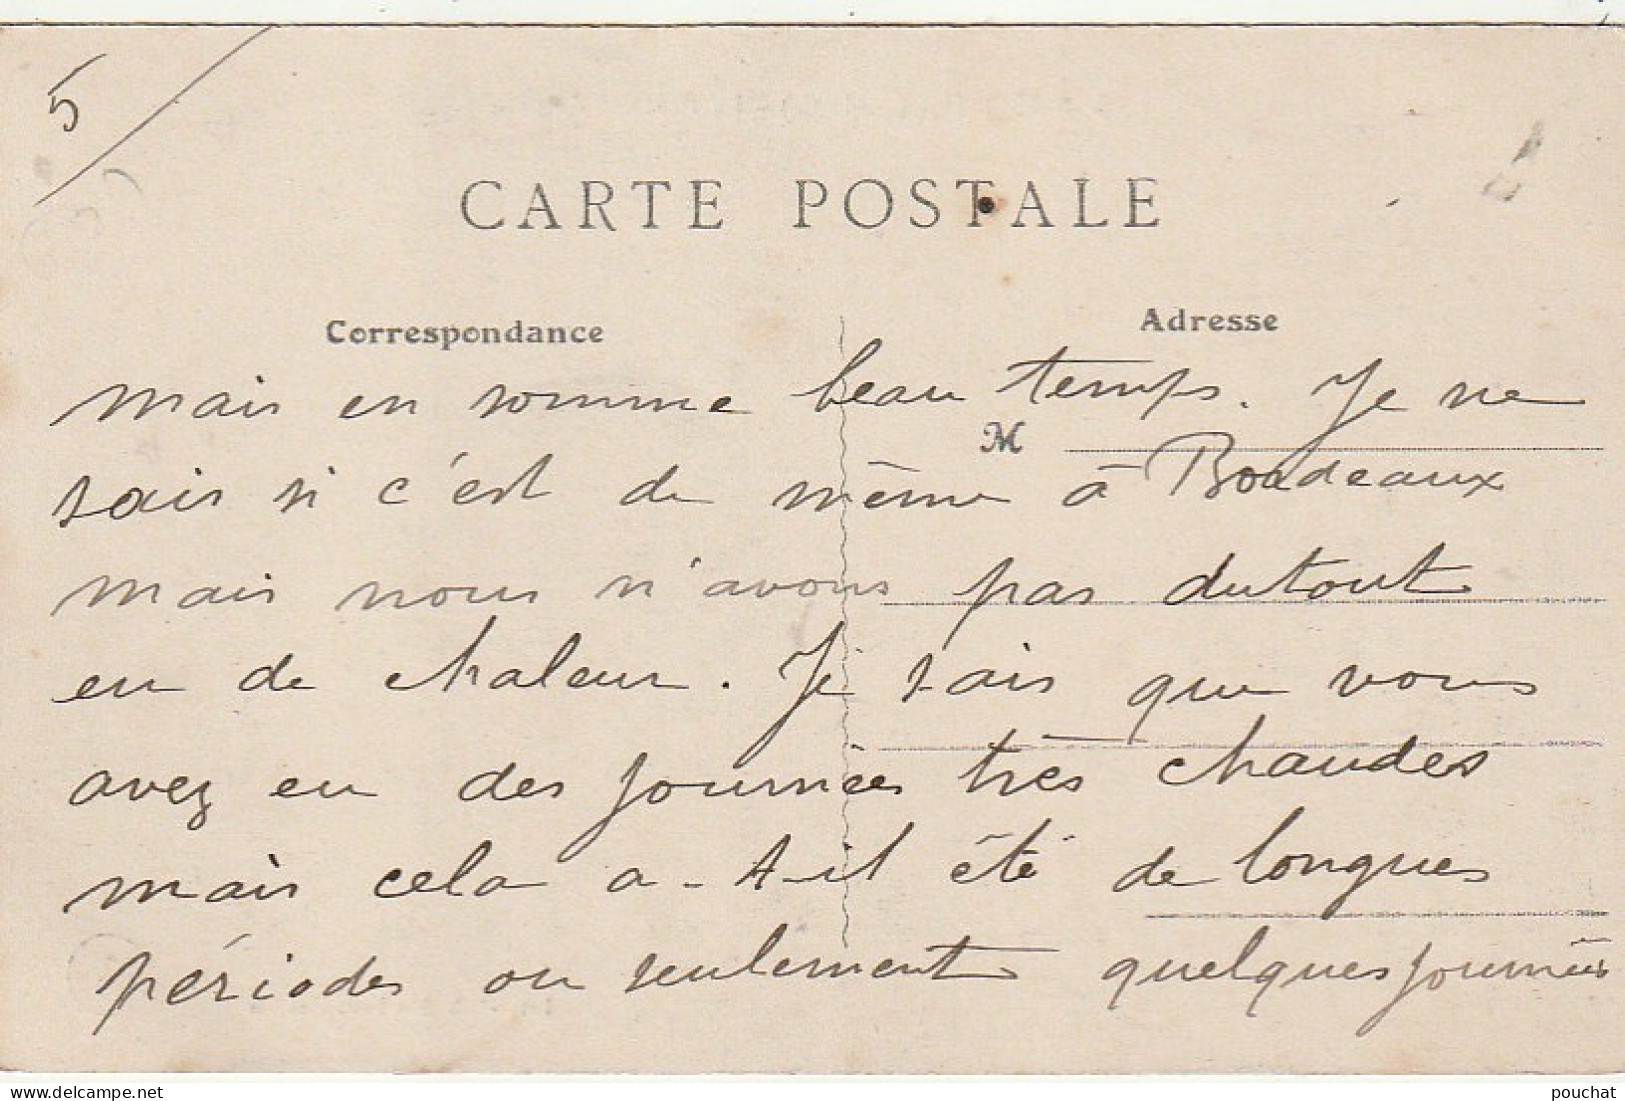 5
CARTE POSTALE
Correspondance
Adresse
mais en somme beau temps. Je ne
M
sais si c'est de même à Bordeaux
mais nous n'avons pas dutout
eu de chaleur. Je sais que vous
avez eu des journées très chaudes
mais cela a-t-il été de longues
périodes ou seulement quelques journées
www.delcampe.net
pouchat